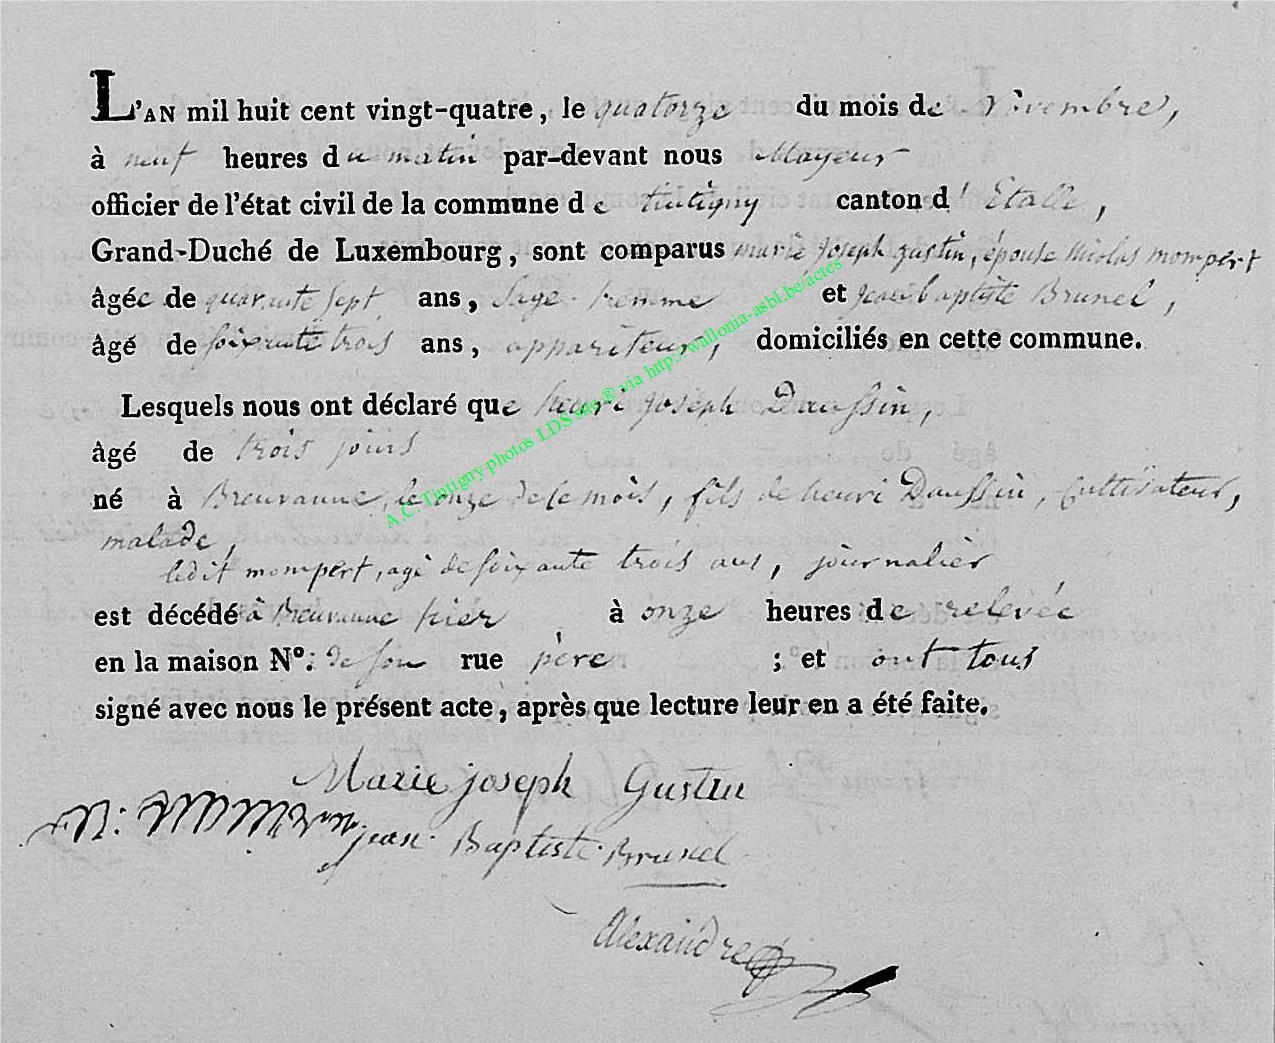 L'AN mil huit cent vingt-quatre, le quatorze du mois de Novembre,
à neuf heures du matin par-devant nous Mayeur
officier de l'état civil de la commune de tintigny canton d'Etalle,
Grand-Duché de Luxembourg, sont comparus marie Joseph gustin, épouse Nicolas mompert
âgée de quarante sept ans, Sage-femme et jean baptiste Brunel,
âgé de soixante trois ans, appariteur, domiciliés en cette commune.
Lesquels nous ont déclaré que henri joseph Daussin,
âgé de trois jours
né à Breuvanne, le onze de ce mois, fils de henri Daussin, Cultivateur,
malade,
ledit mompert, agé de soixante trois ans, journalier
est décédé à Breuvanne hier à onze heures de relevée
en la maison N°: de son rue père ; et ont tous
signé avec nous le présent acte, après que lecture leur en a été faite.
Marie joseph Gustin
N:
jean Baptiste Brunel
Alexandre
A.C. Tintigny photos LDS site ® via http://wallonia-asbl.be/actes